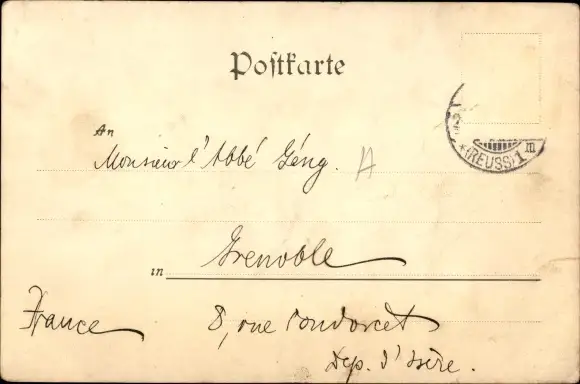 Postkarte
An
Monsieur l'Abbé Gény.
A
in Grenoble
France 8, rue Condorcet
Dép. d'Isère.
*(REUSS) 1 m